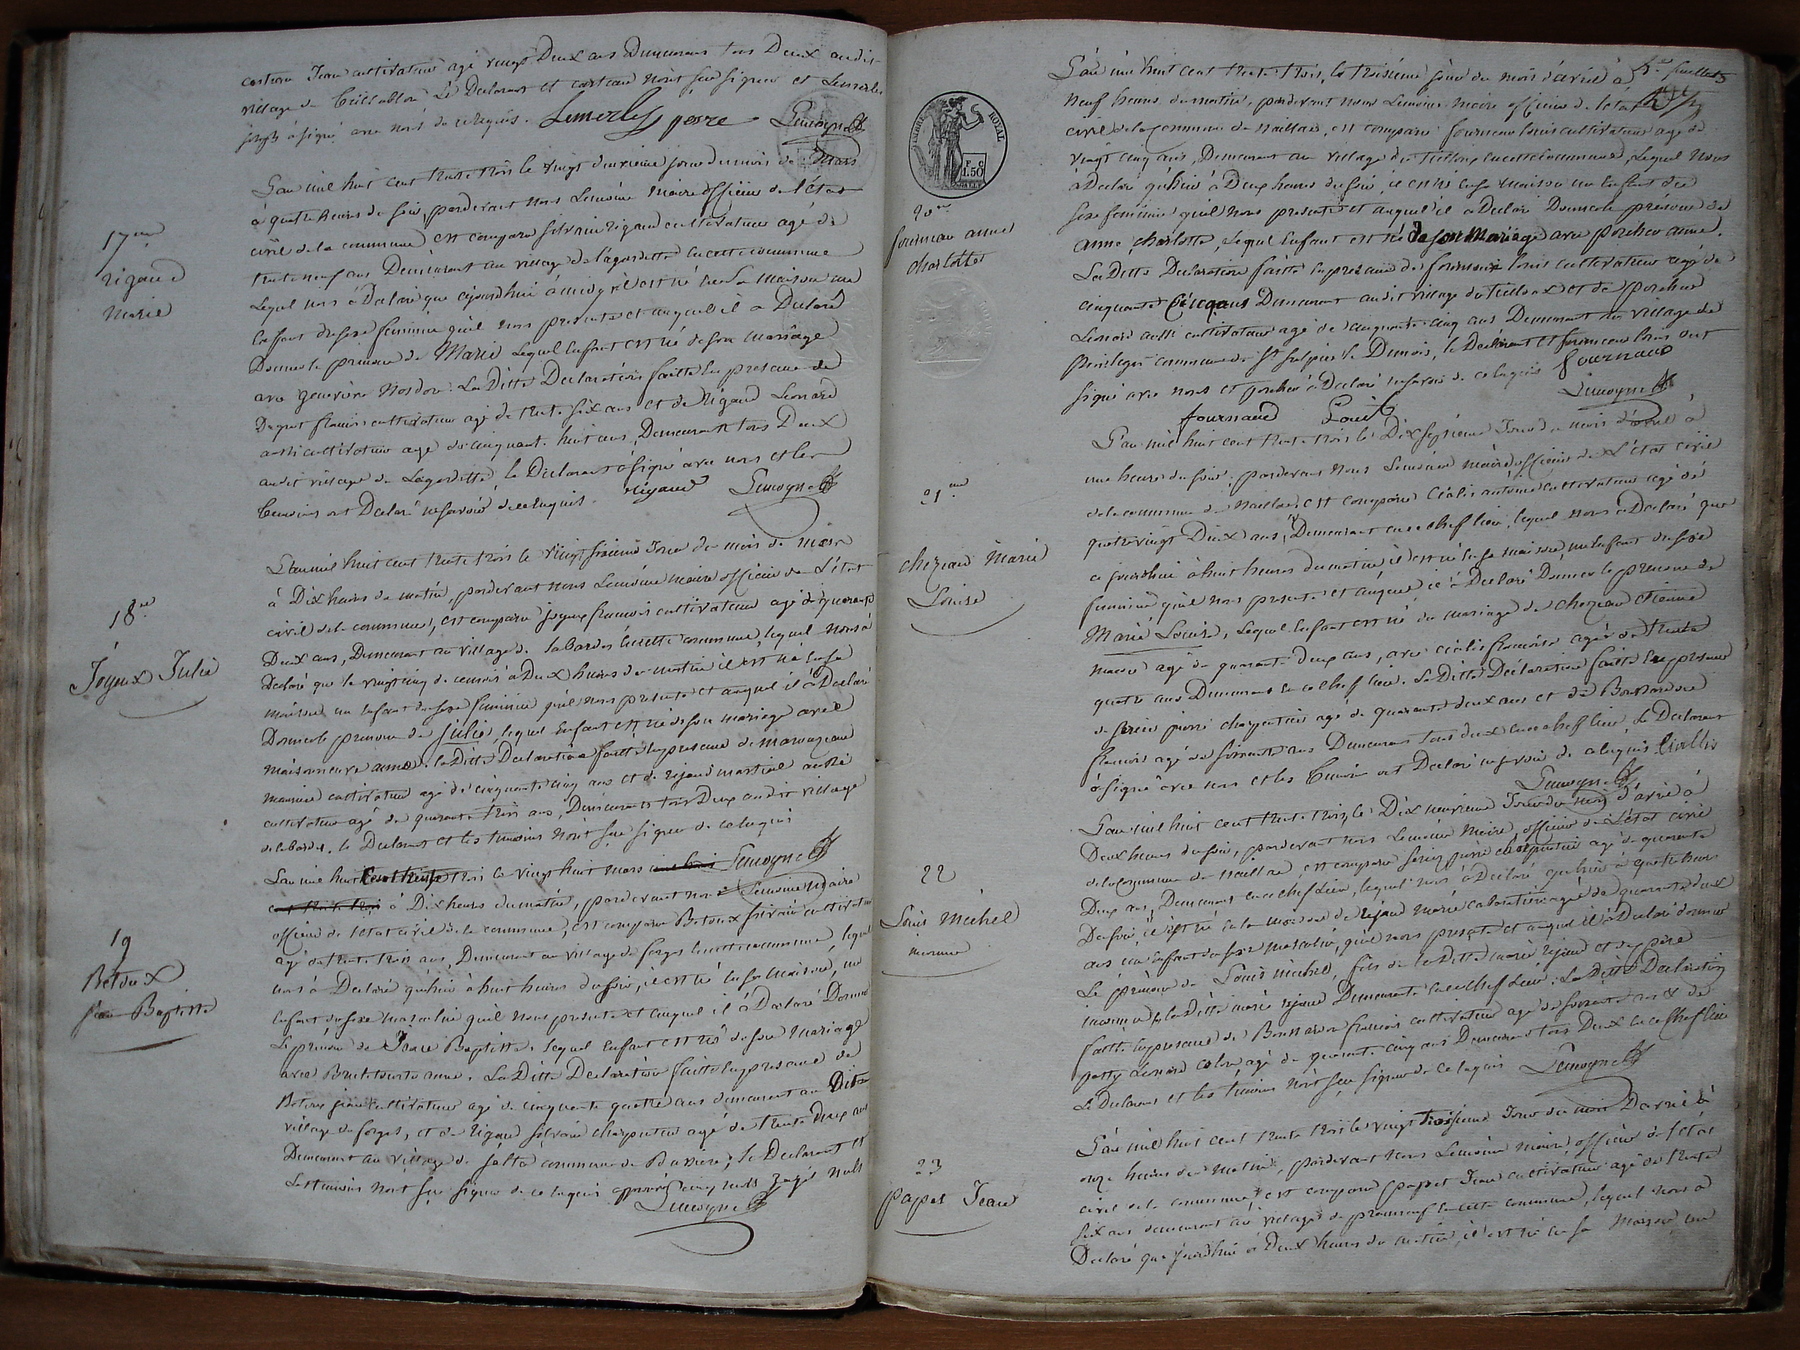 costeau Jean cultivateur agé vingt Deux ans Demeurans tous Deux audit
village de Le Declarant et costeau n'ont seu signer et Lemerle
à signé avec nous de ce Requis. Lemerle pierre Lemoyne
17me
rigaud
Marie
L'an mil huit cent trente trois le vingt deuxieme jour du mois de Mars
à quatre heures du soir, pardevant nous Lemoine Maire officier de l'état
civil de la commune est comparu silvain rigaud cultivateur agé de
trente neuf ans Demeurant au village de lagordette en cette commune
Lequel nous à Declaré que cejourdhui à il est né en sa maison un
Enfant du sexe feminin qu'il nous presente et auquel il a Declaré
Donner le prenom de Marie Lequel Enfant est né de son mariage
avec genevieve La Ditte Declaration faitte En presence de
cultivateur agé de trente six ans et de rigaud Leonard
aussi cultivateur agé de cinquante huit ans, Demeurants tous Deux
audit village de Lagordette, le Declarant à signé avec nous et les
temoins ont Declaré ne savoir de ce Requis. rigaud Lemoyne
18me
Joyeux Julie
L'an mil huit cent trente trois le vingt sixieme Jour du mois de mars
à Dix heures du matin, pardevant nous Lemoine maire officier de L'état
civil de la commune, est comparu joyeux francois cultivateur agé de quarante
Deux ans, Demeurant au village de Labardes en cette commune, lequel nous à
Declaré que le vingt cinq du courant à Deux heures du matin il est né En sa
maison un Enfant du sexe feminin qu'il nous presente et auquel il à Declaré
Donner le prenom de Julie, lequel Enfant est né de son mariage avec
maisonneuve anne. la Ditte Declaration faitte En presence de
cultivateur agé de cinquante cinq ans et de rigaud martial aussi
cultivateur agé de quarante trois ans, Demeurants tous Deux audit village
de labardes. le Declarant et les temoins n'ont seu signer de ce Requis
Lemoyne
19
Betoux
jean Baptiste
L'an mil huit cent trente trois le vingt huit mars
à Dix heures du matin, pardevant nous Lemoine Maire
officier de l'état civil de la commune, est comparu Betoux silvain cultivateur
agé de trente trois ans, Demeurant au village de forges En cette commune, lequel
nous à Declaré qu'hier à huit heures du soir, il est né En sa maison, un
Enfant du sexe masculin qu'il nous presente et auquel il à Declaré Donner
Le prenom de Jean Baptiste. Lequel Enfant est né de son mariage
avec anne. La Ditte Declaration faitte En presence de
Betoux jean cultivateur agé de cinquante quatre ans demeurant au Dit
village de forges, et de rigaud silvain charpentier agé de trente Deux ans
Demeurant au village de commune de le Declarant et
Les temoins n'ont seu signer de ce requis approuvé cinq mots rayés nuls
Lemoyne
5me feuillet
TIMBRE ROYAL
1.50
20me
fournaud anne
charlotte
L'an mil huit cent trente trois, le troisieme jour du mois d'avril à
neuf heures du matin, pardevant nous Lemoine maire officier de l'état
civil de la Commune de Naillat, est comparu fournaud louis cultivateur agé de
vingt cinq ans, Demeurant au village du en cette commune, Lequel nous
à Declaré qu'hier à Deux heures du soir, il est né En sa maison un Enfant du
sexe feminin qu'il nous presente et auquel il a Declaré Donner le prenom de
anne charlotte, Lequel Enfant est né de son Mariage avec porcher anne.
La Ditte Declaration faitte En presence de fournaud louis cultivateur agé de
cinquante cinq ans Demeurant audit village du et de porcher
Leonard aussi cultivateur agé de cinquante cinq ans Demeurant au village de
commune de St sulpice le Dunois, le Declarant et fournaud louis ont
signé avec nous et porcher à Declaré ne savoir de ce requis fournaud
fournaud Louis Lemoyne
21me
chezeau Marie
Louise
L'an mil huit cent trente trois le Dix septieme Jour du mois d'avril à
une heure du soir, pardevant nous Lemoine maire, officier de L'état civil
de la commune de Naillat, est comparu antoine cultivateur agé de
quatre vingt Deux ans, Demeurant en ce chef lieu, lequel nous à Declaré que
ce jourdhui à huit heures du matin il est né En sa maison, un Enfant du sexe
feminin, qu'il nous presente et auquel il à Declaré Donner le prenom de
Marie Louise, Lequel Enfant est né du mariage de chezeau etienne
agé de quarante deux ans, avec francoise agée de trente
quatre ans Demeurans En ce chef lieu. La Ditte Declaration faitte En presence
de pierre charpentier agé de quarante deux ans et de
francois agé de soixante ans Demeurans tous deux En ce chef lieu, Le Declarant
à signé avec nous et les temoins ont Declaré ne savoir de ce Requis
Lemoyne
22
Louis Michel
L'an mil huit cent trente trois, le Dix neuvieme Jour du mois d'avril à
Deux heures du soir, pardevant nous Lemoine Maire, officier de L'état civil
de la commune de Naillat, est comparu pierre charpentier agé de quarante
Deux ans, Demeurant en ce chef Lieu, lequel nous à Declaré qu'hier à quatre heures
Du soir, il est né En la maison de rigaud Marie agée de quarante deux
ans un Enfant du sexe masculin, qu'il nous presente et auquel il à Declaré donner
Le prenom de Louis michel, fils de la Ditte marie rigaud et de pere
la Ditte marie rigaud Demeurante En ce chef Lieu. La Ditte Declaration
faitte En presence de francois cultivateur agé de soixante ans & de
petit Leonard colon agé de quarante cinq ans Demeurans tous Deux En ce chef lieu
Le Declarant et les temoins n'ont seu signer de ce requis Lemoyne
23
papet Jean
L'an mil huit cent trente trois le vingt troisieme Jour du mois Davril à
onze heures du matin, pardevant nous Lemoine maire, officier de l'état
civil de la commune, est comparu papet Jean cultivateur agé de trente
six ans demeurant au village de En cette commune, lequel nous à
Declaré que jourdhui à Deux heures du matin, il est né En sa Maison, un